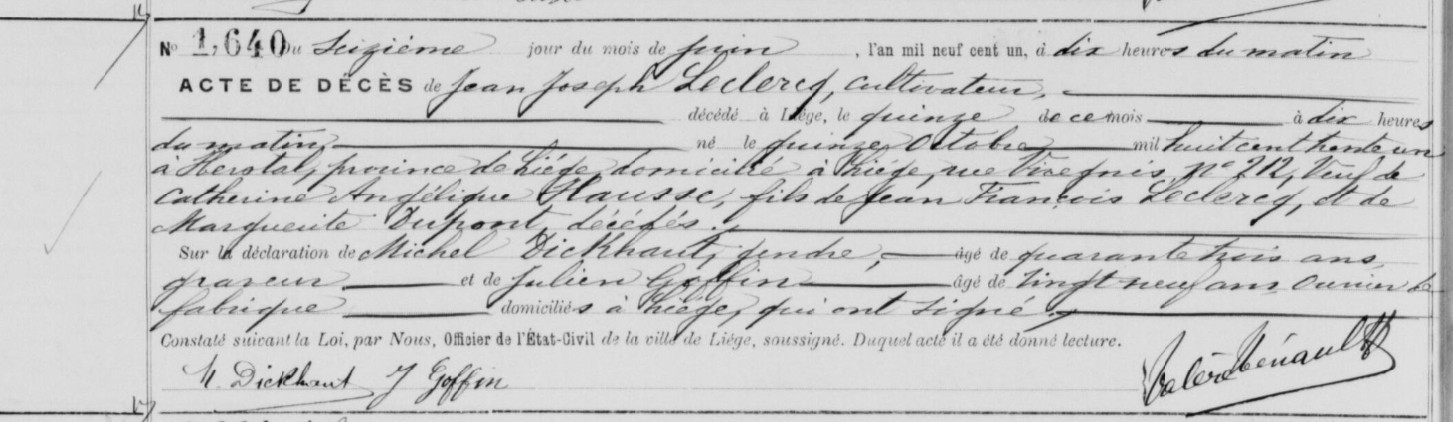 No 1,640 Du Seizième jour du mois de juin, l'an mil neuf cent un, à dix heures du matin
ACTE DE DÉCÈS de Jean Joseph Leclercq, cultivateur,
décédé à Liége, le quinze de ce mois à dix heures
du matin, né le quinze Octobre mil huit cent trente un
à Herstal, province de Liége, domicilié à Liége, rue Vivegnis, no 212, Veuf de
Catherine Angélique Hausse, fils de Jean François Leclercq, et de
Marguerite Dupont, décédés.
Sur la déclaration de Michel Dickhaut, gendre, âgé de quarante trois ans,
graveur et de Julien Goffin âgé de vingt neuf ans, ouvrier de
fabrique domiciliés à Liége, qui ont signé.
Constaté suivant la Loi, par Nous, Officier de l'État-Civil de la ville de Liége, soussigné. Duquel acte il a été donné lecture.
M. Dickhaut J Goffin Valère Hénault